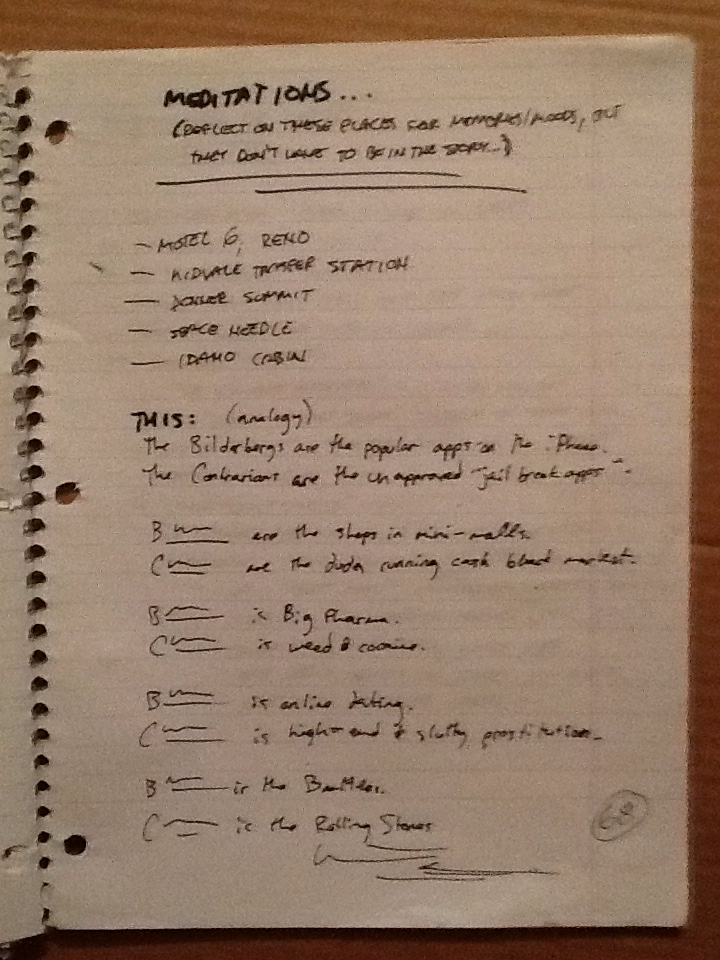 MEDITATIONS...
(REFLECT ON THESE PLACES FOR MEMORIES/MOODS, BUT
THEY DON'T HAVE TO BE IN THE STORY...)
— MOTEL 6, RENO
— TRANSFER STATION
— DONNER SUMMIT
— SPACE NEEDLE
— IDAHO CABIN
THIS: (analogy)
The Bilderbergs are the popular apps on the iPhone.
The Contrarians are the unapproved "jail break apps".
B are the shops in mini-malls.
C are the dudes running cash black market.
B is Big Pharma.
C is weed & cocaine.
B is online dating.
C is high-end & slutty prostitution.
B is the Beatles.
C is the Rolling Stones
68